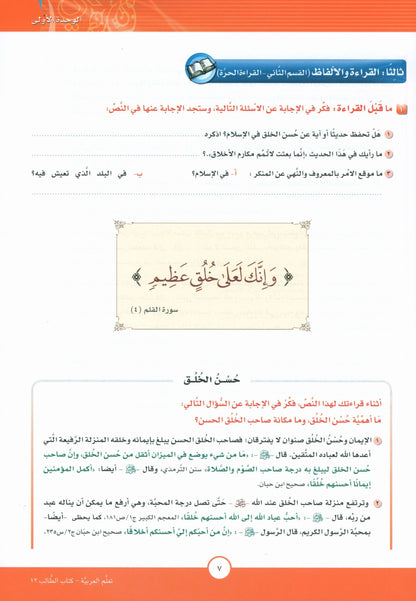 الوحدة الأولى
ثالثًا: القراءة والألفاظ (القسم الثاني - القراءة الحرّة)
١ ما قَبْلَ القراءة: فكّر في الإجابة عن الأسئلة التالية، وستجد الإجابة عنها في النصّ:
١ هلْ تحفظ حديثًا أو آية عن حُسن الخلق في الإسلام؟ اذكره
٢ ما رأيك في هَذا الحديث «إنّما بعثت لأتمّم مكارم الأخلاق»؟
٣ ما موقع الأمْر بالمعروف والنّهي عن المنكر: أ- في الإسلام؟ ب- في البلد الّذي تعيش فيه؟
﴿ وَإِنَّكَ لَعَلَىٰ خُلُقٍ عَظِيمٍ ﴾
سورة القلم (٤)
حُسْنُ الخُلُق
أثناء قراءتك لهذا النّصّ، فكّرْ في الإجابة عن السُّؤال التّالي:
ما أهمّيّة حُسْن الخُلُق، وما مكانة صاحب الخُلُق الحسن؟
١ الإيمان وحُسْنُ الخُلُق صنوان لا يفترقان: فصاحب الخُلق الحسن يبلغ بإيمانه وخلقه المنزلة الرّفيعة الّتي
أعدها الله لعباده المتّقين. قال -ﷺ-: «ما من شيء يوضع في الميزان أثقل من حُسن الخلق، وإنّ صاحب
حُسن الخلق ليبلغ به درجة صاحب الصّوْم والصّلاة» سنن التّرمذي، وقال -ﷺ- أيضا: «أكمل المؤمنين
إيمانًا أحسنهم خُلُقًا» صحيح ابن حبان.
٢ وترتفع منزلة صاحب الخُلق عند الله -ﷻ- حتّى تصل درجة المحبّة، وهي أرفع ما يمكن أن يناله عبد
من ربّه. قال -ﷺ-: «أحبّ عباد الله إلى الله أحسنهم خلقًا» المعجم الكبير ج١/ص١٨١، كما يحظى -أيضًا-
بمحبّة الرّسول الكريم، قال الرسول -ﷺ-: «إنّ من أحبّكم إليّ أحسنكم أخلاقًا» صحيح ابن حبان ج٢/ص٢٣٥.
٧
تعلّم العربيّة - كتاب الطّالب ١٢